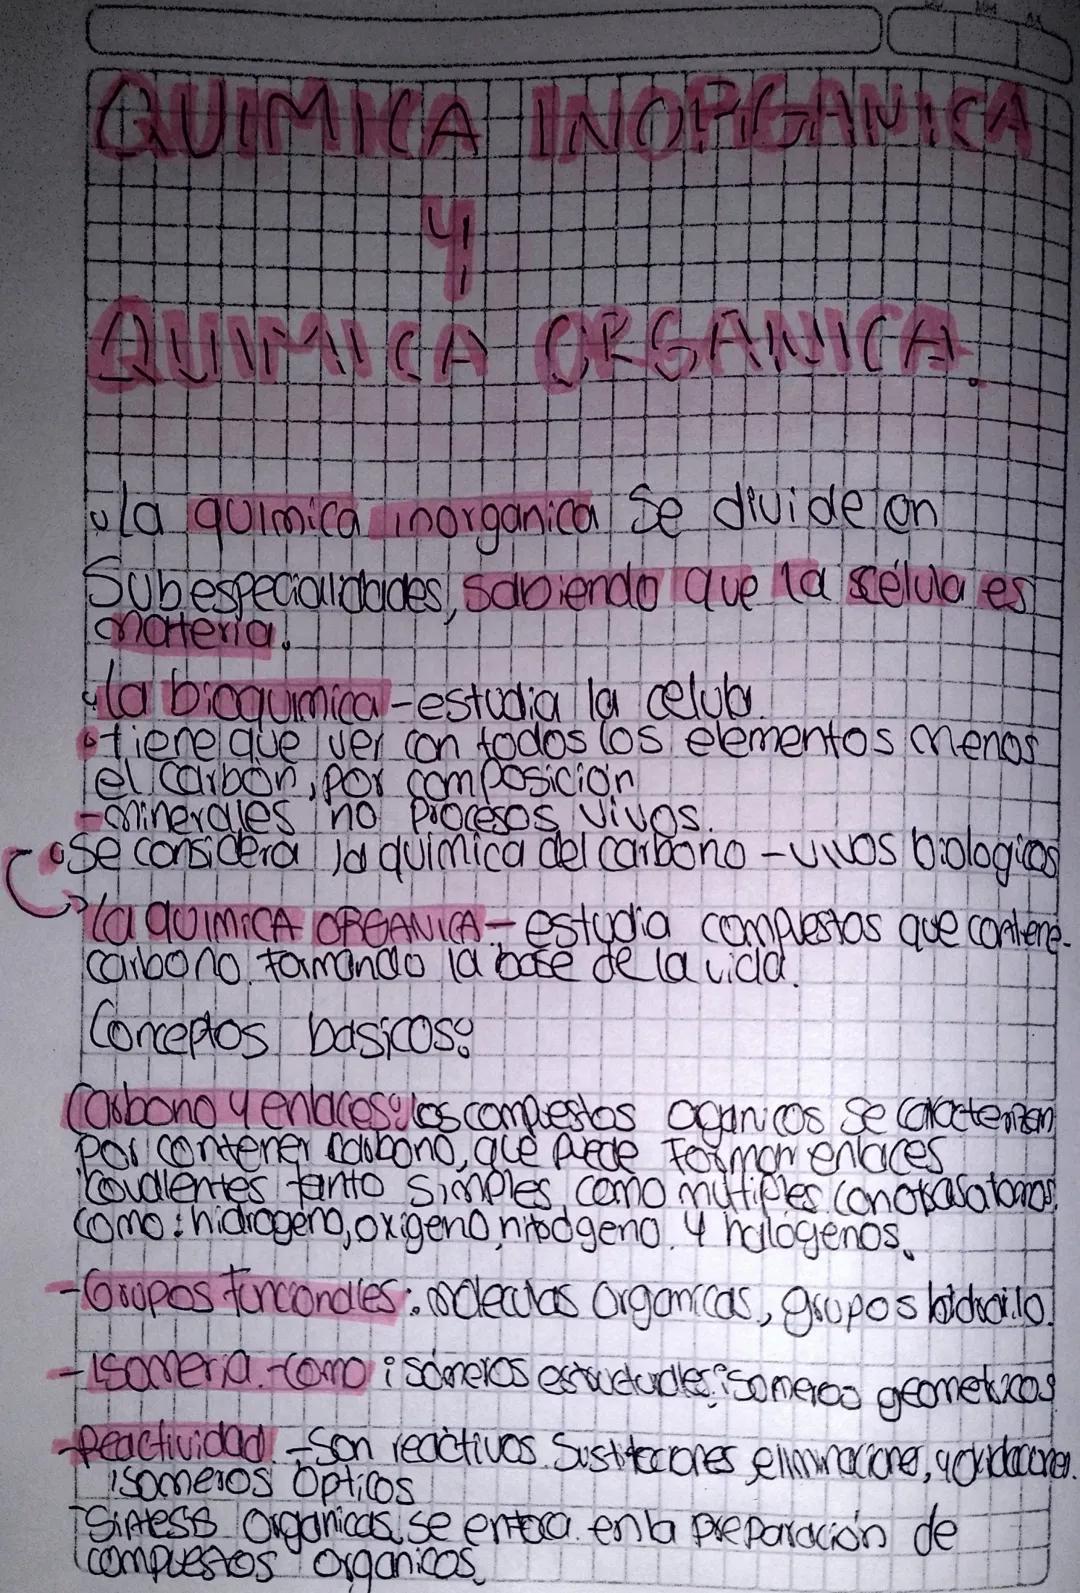 QUIMICA INORGANICA
y
QUIMICA ORGANICA.
La quimica inorganica se divide en
Subespecialidades, sabiendo que la celula es
materia.
la bioquimica - estudia la celula.
tiene que ver con todos los elementos menos
el carbon, por composición
- minerales no procesos vivos.
Se considera la quimica del carbono - vivos biologicos
La QUIMICA ORGANICA - estudia compuestos que contene-
carbono. formando la base de la vida.
Conceptos basicos:
Carbono y enlaces: los compuestos oganicos se caracterizan
por contener carbono, que puede formar enlaces
covalentes tanto simples como multiples con otros atomos.
como: hidrogeno, oxigeno, nitrógeno. y halógenos.
- Grupos funcionales: moleculas organicas, grupos
- Isomeria. - como isómeros estructurales, isomeros geometricos
- Reactividad. - Son reactivos. Sustituciones eliminaciones, y oxidaciones.
isomeros ópticos
- Sintesis organicas. se enfoca en la preparación de
compuestos organicos.